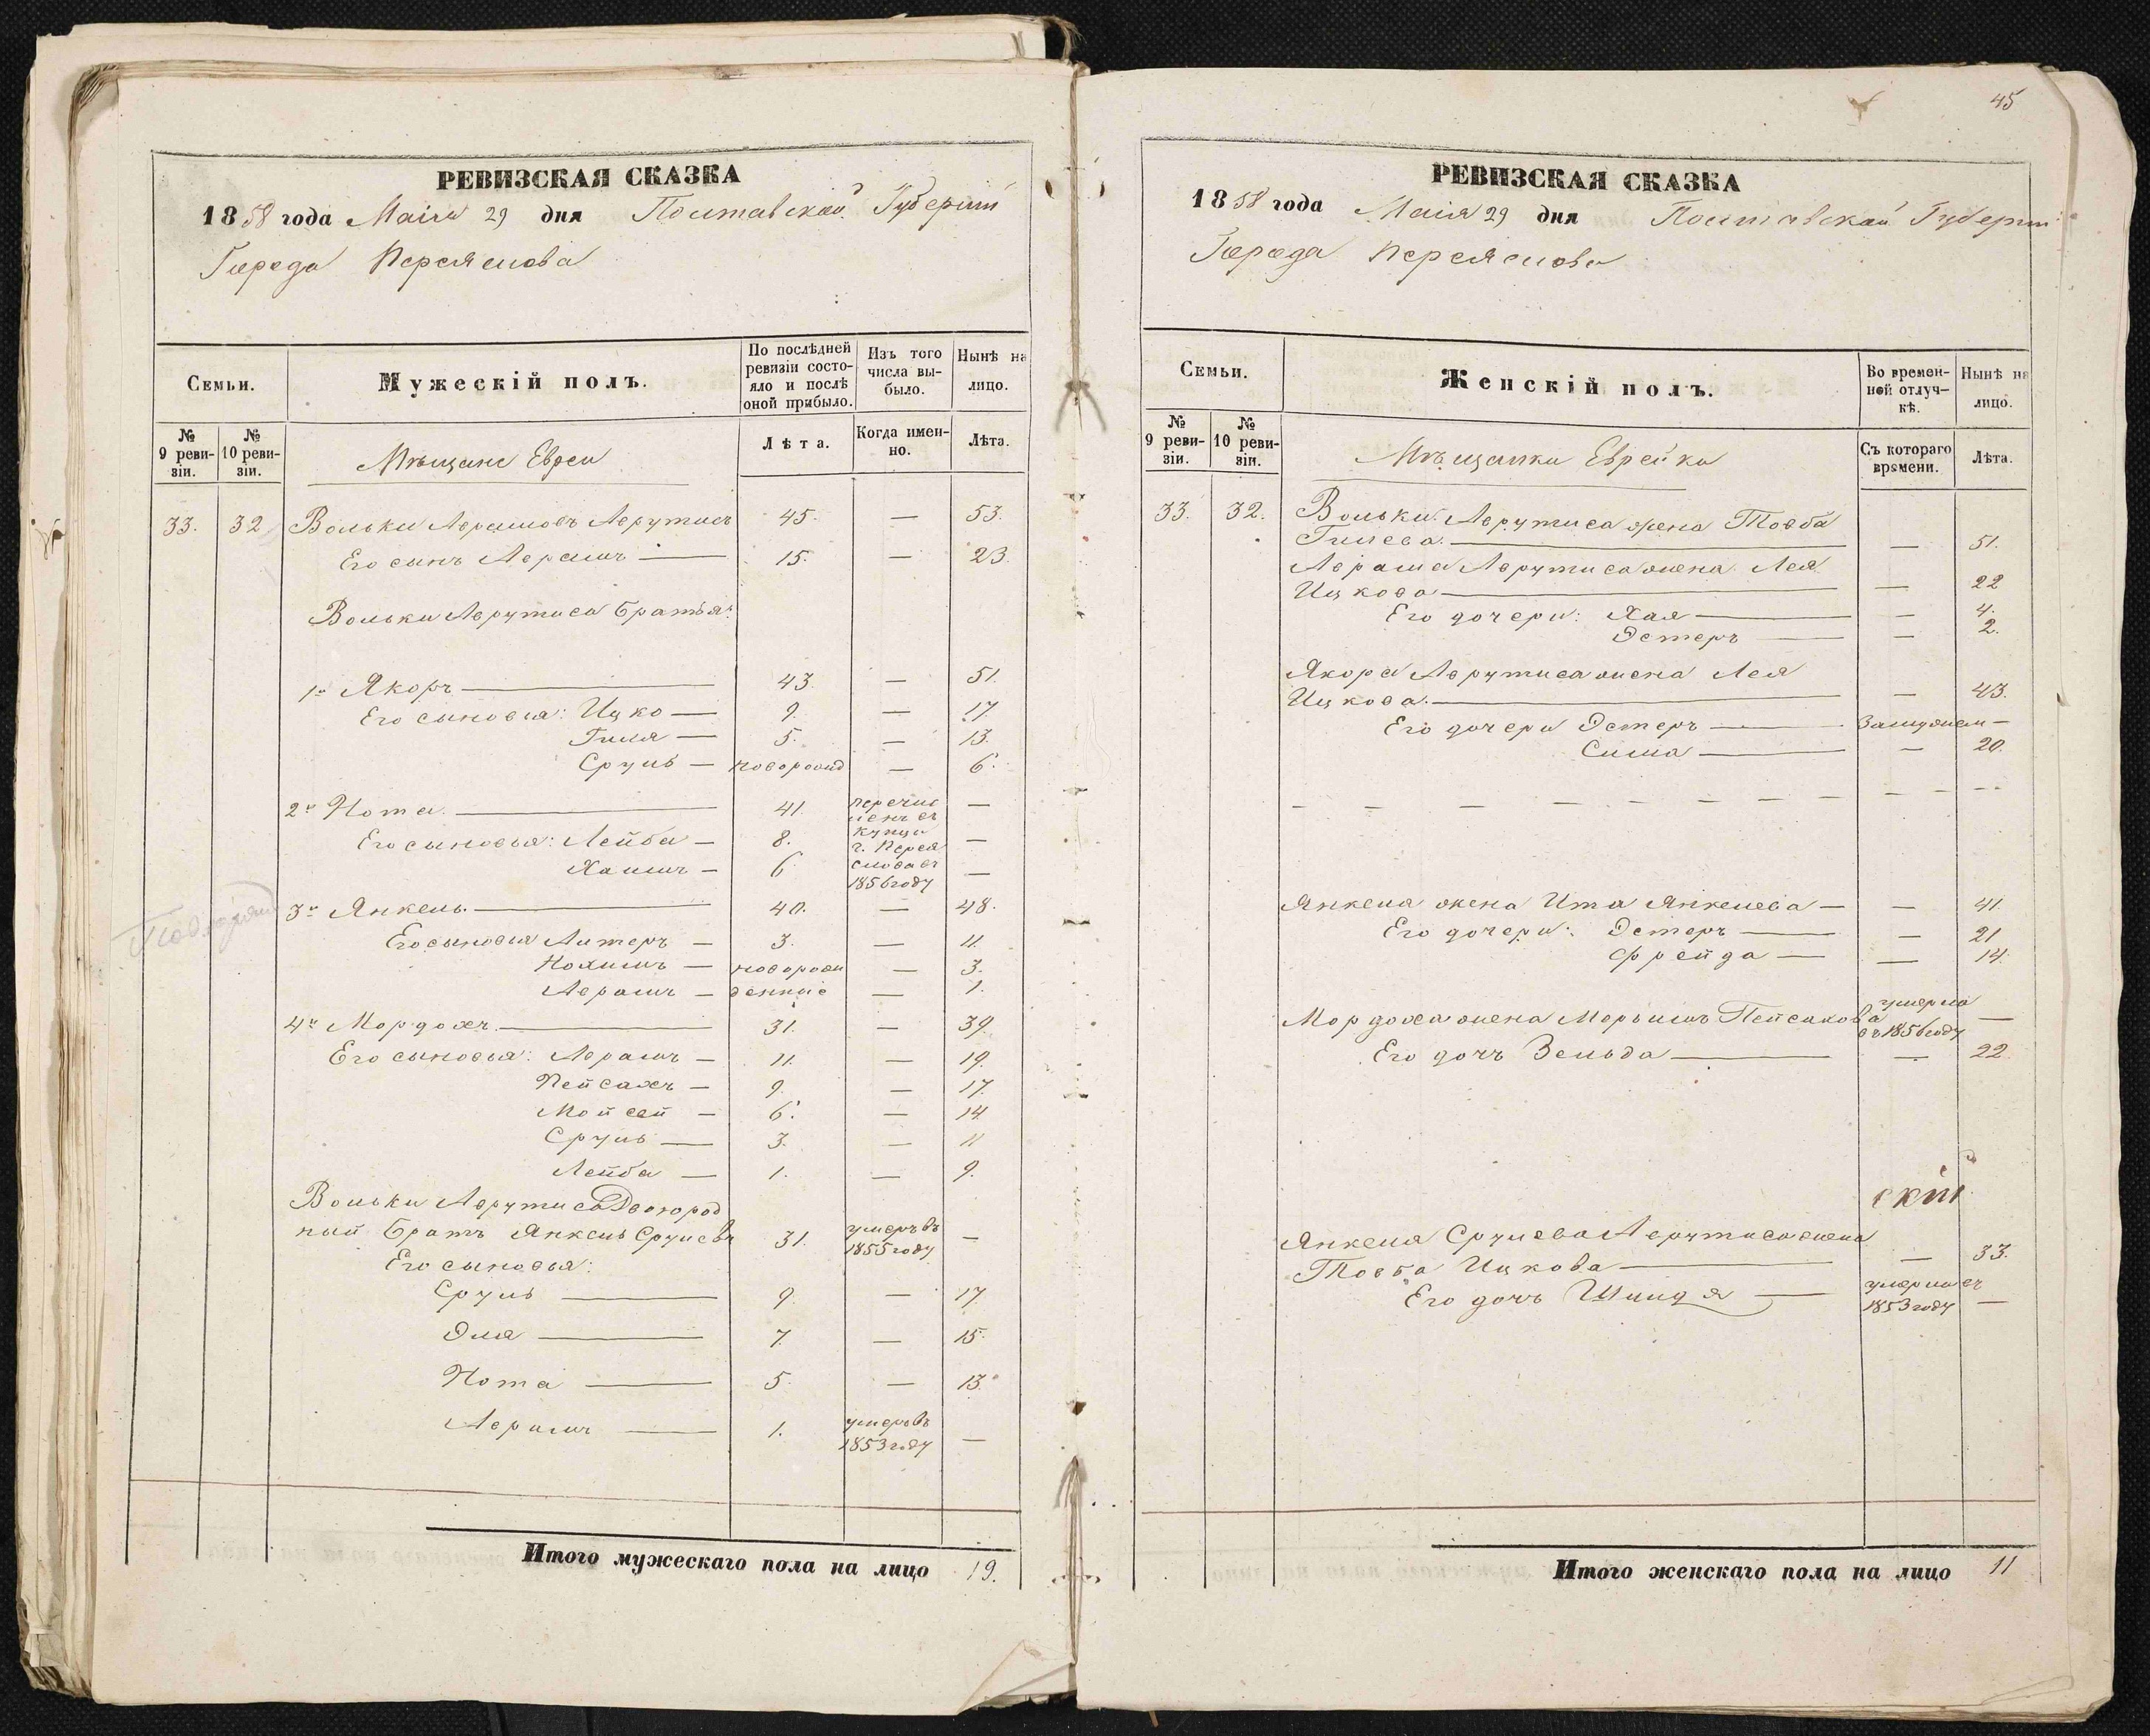 РЕВИЗСКАЯ СКАЗКА
1858 года Маія 29 дня Полтавской Губерніи
Города Переяслова
Семьи.
Мужескій полъ.
По послѣдней ревизіи состояло и послѣ оной прибыло.
Изъ того числа выбыло.
Нынѣ на лицо.
№ 9 ревизіи.
№ 10 ревизіи.
Мѣщане Евреи
Лѣта.
Когда именно.
Лѣта.
33. 32 Вольки Аврамовъ Аврутисъ 45. — 53.
Его сынъ Аврамъ — 15. — 23.
Вольки Аврутиса братья:
1й Якоръ — 43. — 51.
Его сыновья: Ицко — 9. — 17.
Гиля — 5. — 13.
Сруль — новорожд — 6.
2й Нота — 41. перечис —
ленъ въ
Его сыновья: Лейба — 8. купцы —
г. Перея
Хаимъ — 6 слова въ —
1856 году
3й Янкель — 40. — 48.
Его сыновья Литеръ — 3. — 11.
Нохимъ — новорож — 3.
Аврамъ — денные — 1.
4й Мордохъ — 31. — 39.
Его сыновья: Аврамъ — 11. — 19.
Пейсахъ — 9. — 17.
Мойсей — 6. — 14.
Сруль — 3. — 11
Лейба — 1. — 9.
Вольки Аврутиса Двоюрод
ный братъ Янкель Срулевъ 31. умеръ въ 1855 году —
Его сыновья:
Сруль — 9. — 17.
Эля — 7. — 15.
Нота — 5. — 13.
Аврамъ — 1. умеръ въ 1853 году —
Итого мужескаго пола на лицо 19.
45
РЕВИЗСКАЯ СКАЗКА
1858 года Маія 29 дня Полтавской Губерніи
Города Переяслова
Семьи.
Женскій полъ.
Во временной отлучкѣ.
Нынѣ на лицо.
№ 9 ревизіи.
№ 10 ревизіи.
Мѣщанки Еврейки
Съ котораго времени.
Лѣта.
33. 32. Вольки Аврутиса жена Товба
Гилева — — 51.
Аврама Аврутиса жена Лея
Ицкова — — 22
Его дочери: Хая — — 4.
Эстеръ — — 2.
Якора Аврутиса жена Лея
Ицкова — — 43.
Его дочери Эстеръ — Замужем —
Сима — — 20.
— — — — — — — — — — — —
Янкеля жена Ита Янкелева — — 41.
Его дочери: Эстеръ — — 21
Фрейда — — 14.
Мордоха жена Мерьимъ Пейсахова умерла въ 1856 году —
Его дочь Зельда — — 22.
скій
Янкеля Срулева Аврутиса жена
Товба Ицкова — — 33.
Его дочь Шиндя — умерла въ 1853 году —
Итого женскаго пола на лицо 11